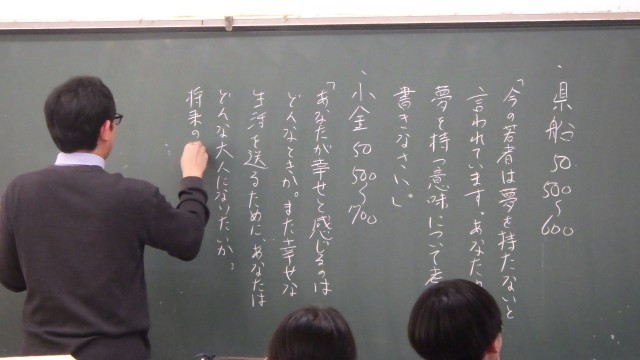 ・県船 50 500〜600
「今の若者は夢を持たないと
言われています。あなた
夢を持つ意味について
書きなさい。」
・小金 50 500〜700
「あなたが幸せと感じるのは
どんなときか。また、幸せな
生活を送るために、あなたは
どんな大人になりたいか。
将来の